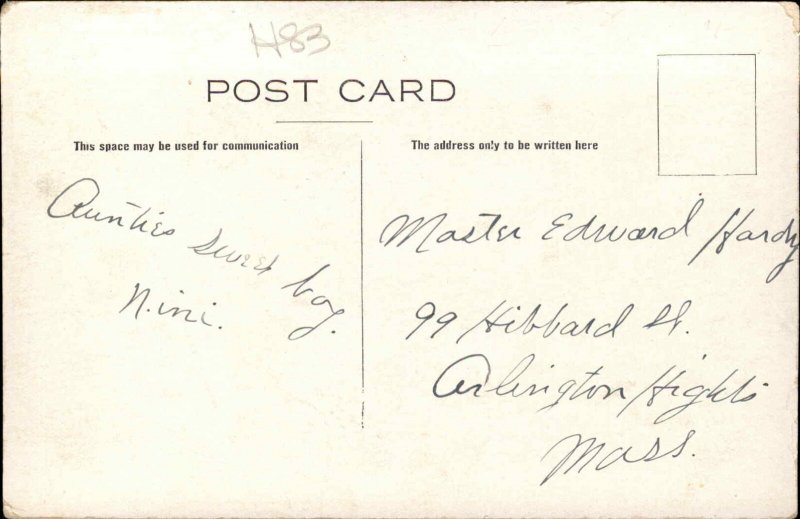 H83
POST CARD
This space may be used for communication
The address only to be written here
Aunties sweet boy.
Nini.
Master Edward Hardy
99 Hibbard St.
Arlington Hights
Mass.